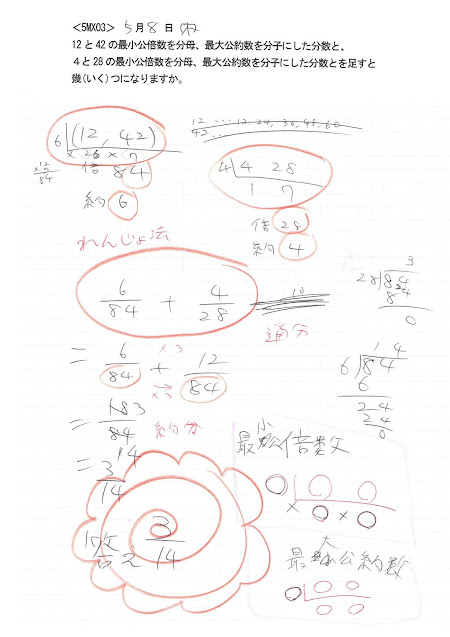 <5MX03> 5月8日(木)
12と42の最小公倍数を分母、最大公約数を分子にした分数と、
4と28の最小公倍数を分母、最大公約数を分子にした分数とを足すと
幾(いく)つになりますか。
12 … 12, 24, 36, 48, 60
42 …
6 (12, 42)
× 2 × 7
12
×7
84
倍 84
約 6
4 4 28
1 7
倍 28
約 4
れんじょ法
6/84 + 4/28
通分
3
28 84
84
0
= 6/84 + 12/84
×3
×3
14
6 84
6
24
24
0
= 18/84 約分
= 3/14
答え 3/14
最小公倍数
× ○ × ○
最大公約数